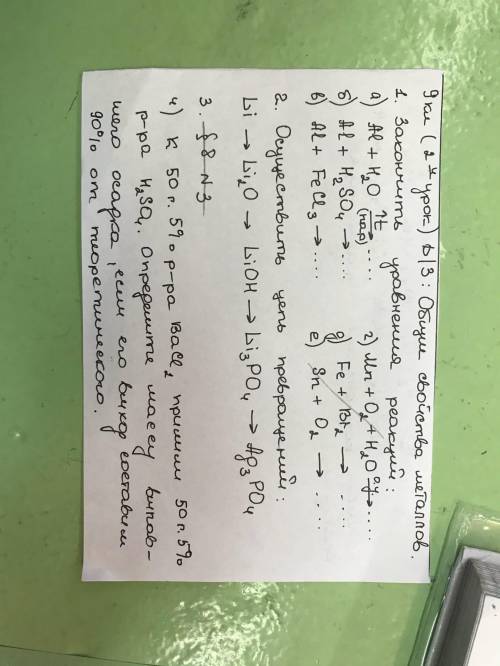 9 кл (2й урок) Д/З: Общие свойства металлов.
1. Закончить уравнения реакций:
а) Al + H2O (пар) t→ .... г) Mn + O2 + H2O →....
б) Al + H2SO4 → .... д) Fe + Br2 → ....
в) Al + FeCl3 → .... е) Sn + O2 → ....
2. Осуществить цепь превращений:
Li → Li2O → LiOH → Li3PO4 → Ag3PO4
3. § 8 N 3
4) К 50 г. 5% р-ра BaCl2 прилили 50 г. 5%
р-ра H2SO4. Определите массу выпав-
шего осадка, если его выход составил
90% от теоретического.